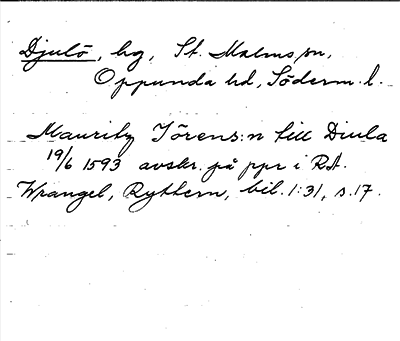 Djulö, hg, St. Malms sn,
Oppunda hd, Söderm. l.
Mauritz Jörens:n till Diula
19/6 1593 avskr. på ppr i RA.
Wrangel, Ryttern, bil. 1:31, s. 17.